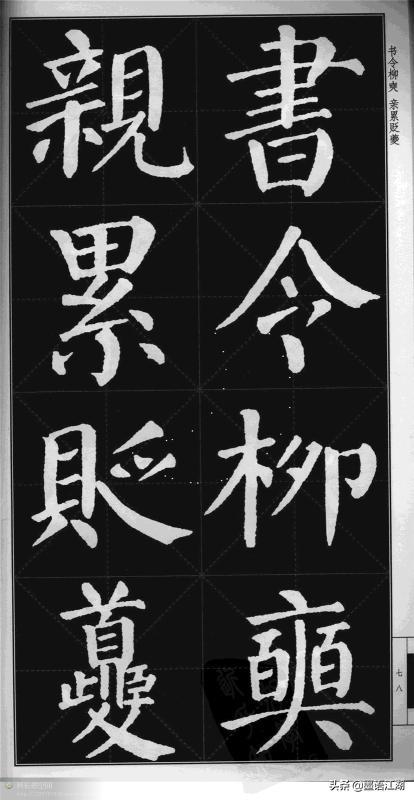 书令柳奭 亲累贬夔
書令柳奭
親累貶夔
七八
头条@墨语江湖